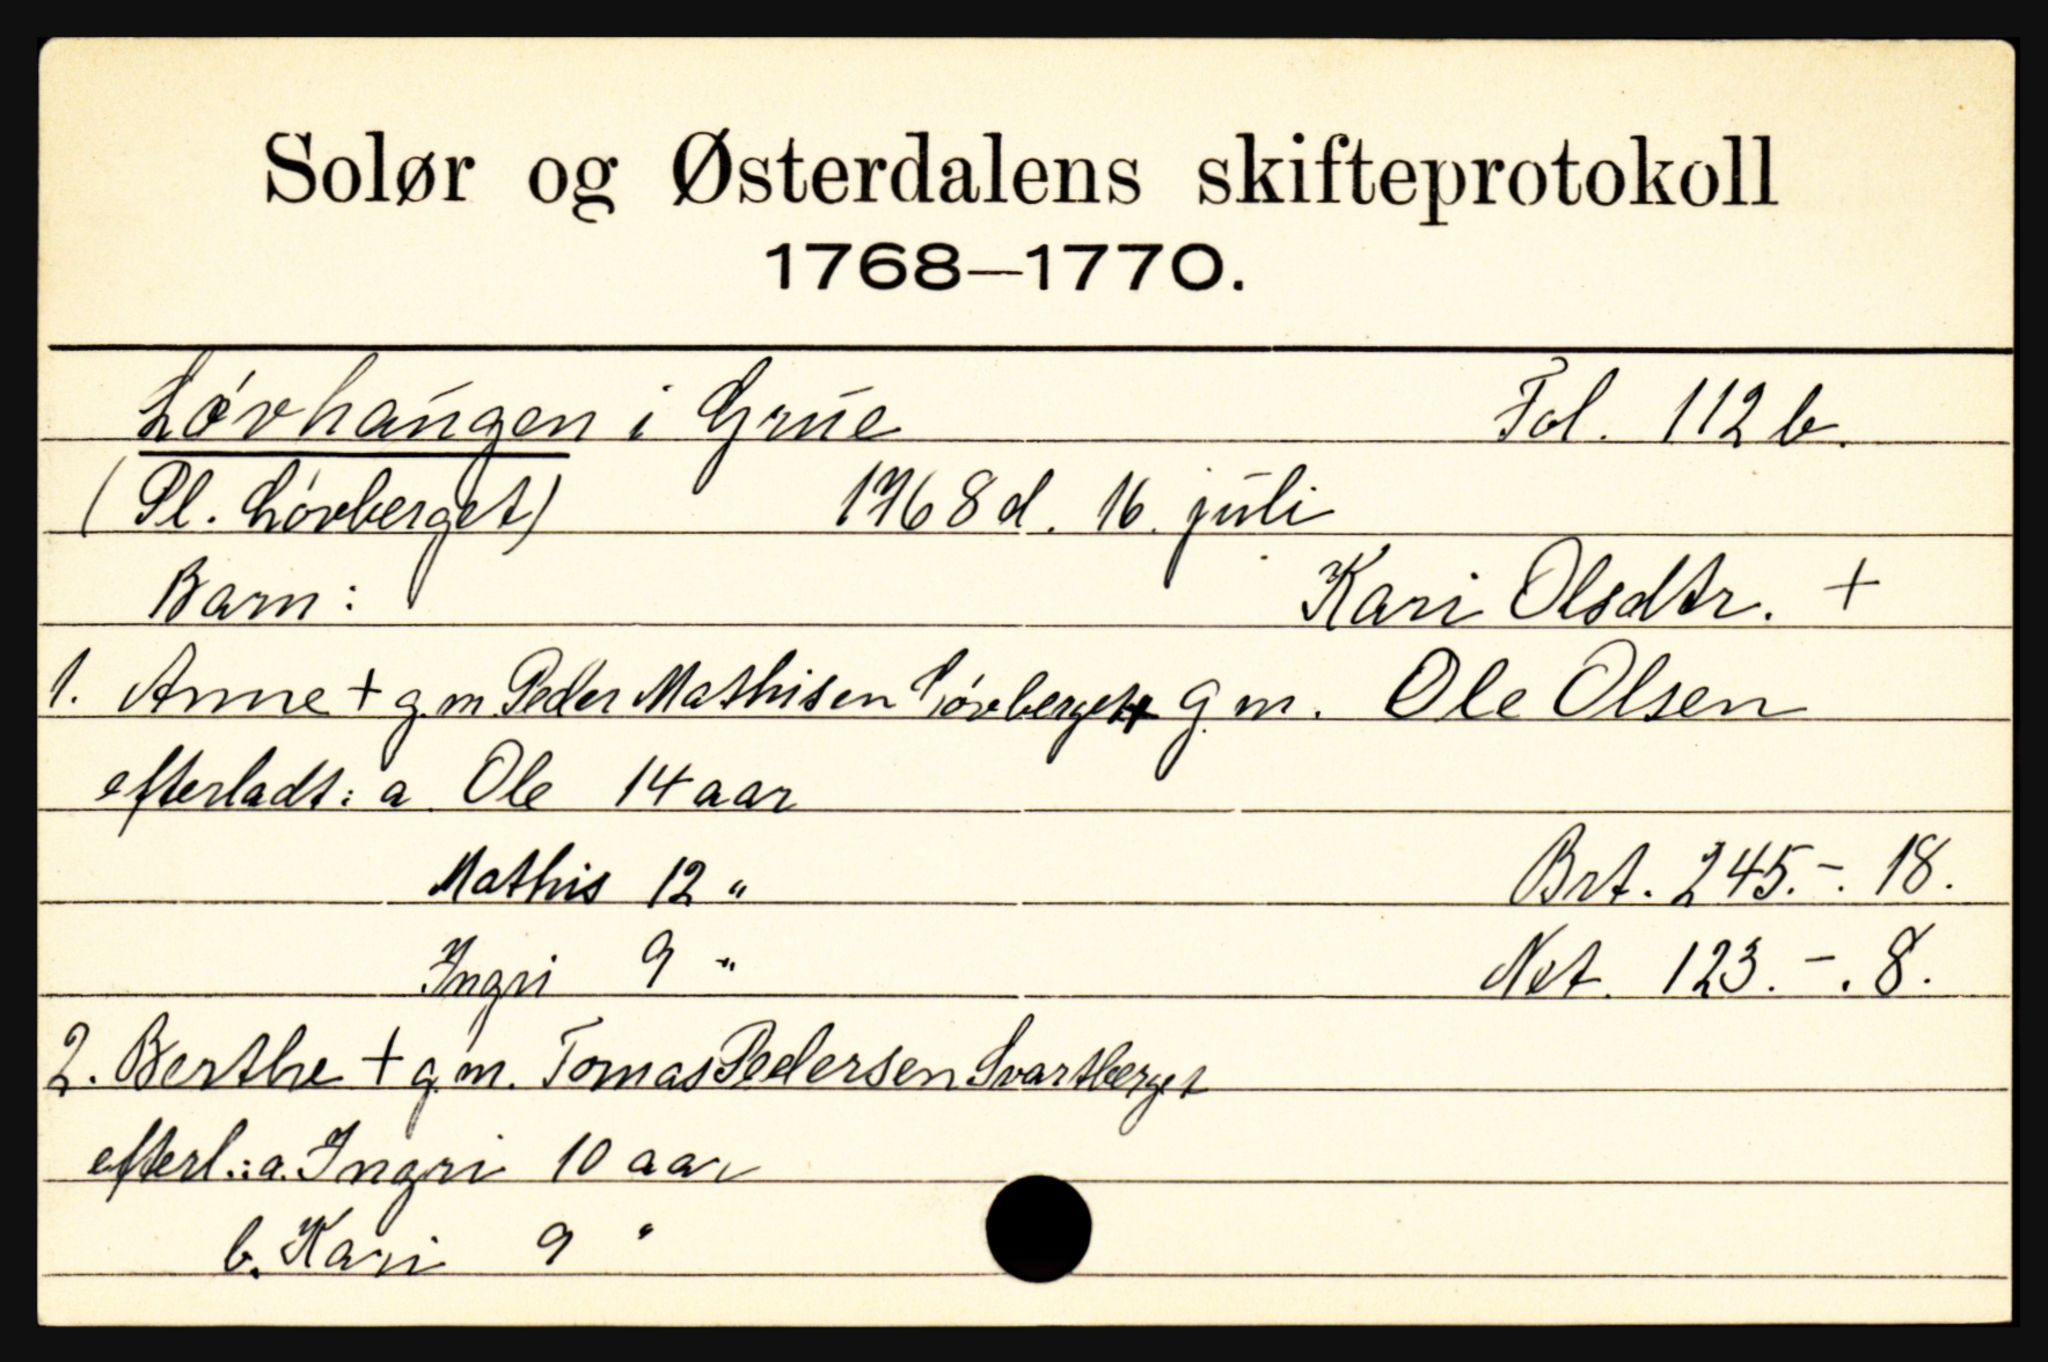 Solør og Østerdalens skifteprotokoll
1768—1770.
Løvhaugen i Grue Fol. 112 b.
(Pl. Løvberget) 1768 d. 16. juli
Barn: Kari Olsdtr. +
1. Anne + g.m. Peder Mathisen Løvberget + g.m. Ole Olsen
efterladt: a. Ole 14 aar
Mathis 12 "
Brt. 245.-. 18.
Ingri 9 "
Net. 123. -. 8.
2. Berthe + g.m. Tomas Pedersen Svartberget
efterl.: a. Ingri 10 aar
b. Kari 9 "